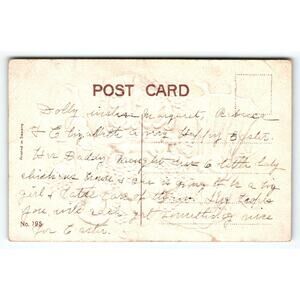 POST CARD
Dolly wishes Margaret, Rebecca
& Elizabeth a very Happy Easter.
Her Daddy bought her 6 little baby
chickens and she is going to be a big
girl & take care of them. Hope
you will each get something nice
for Easter.
No. 195